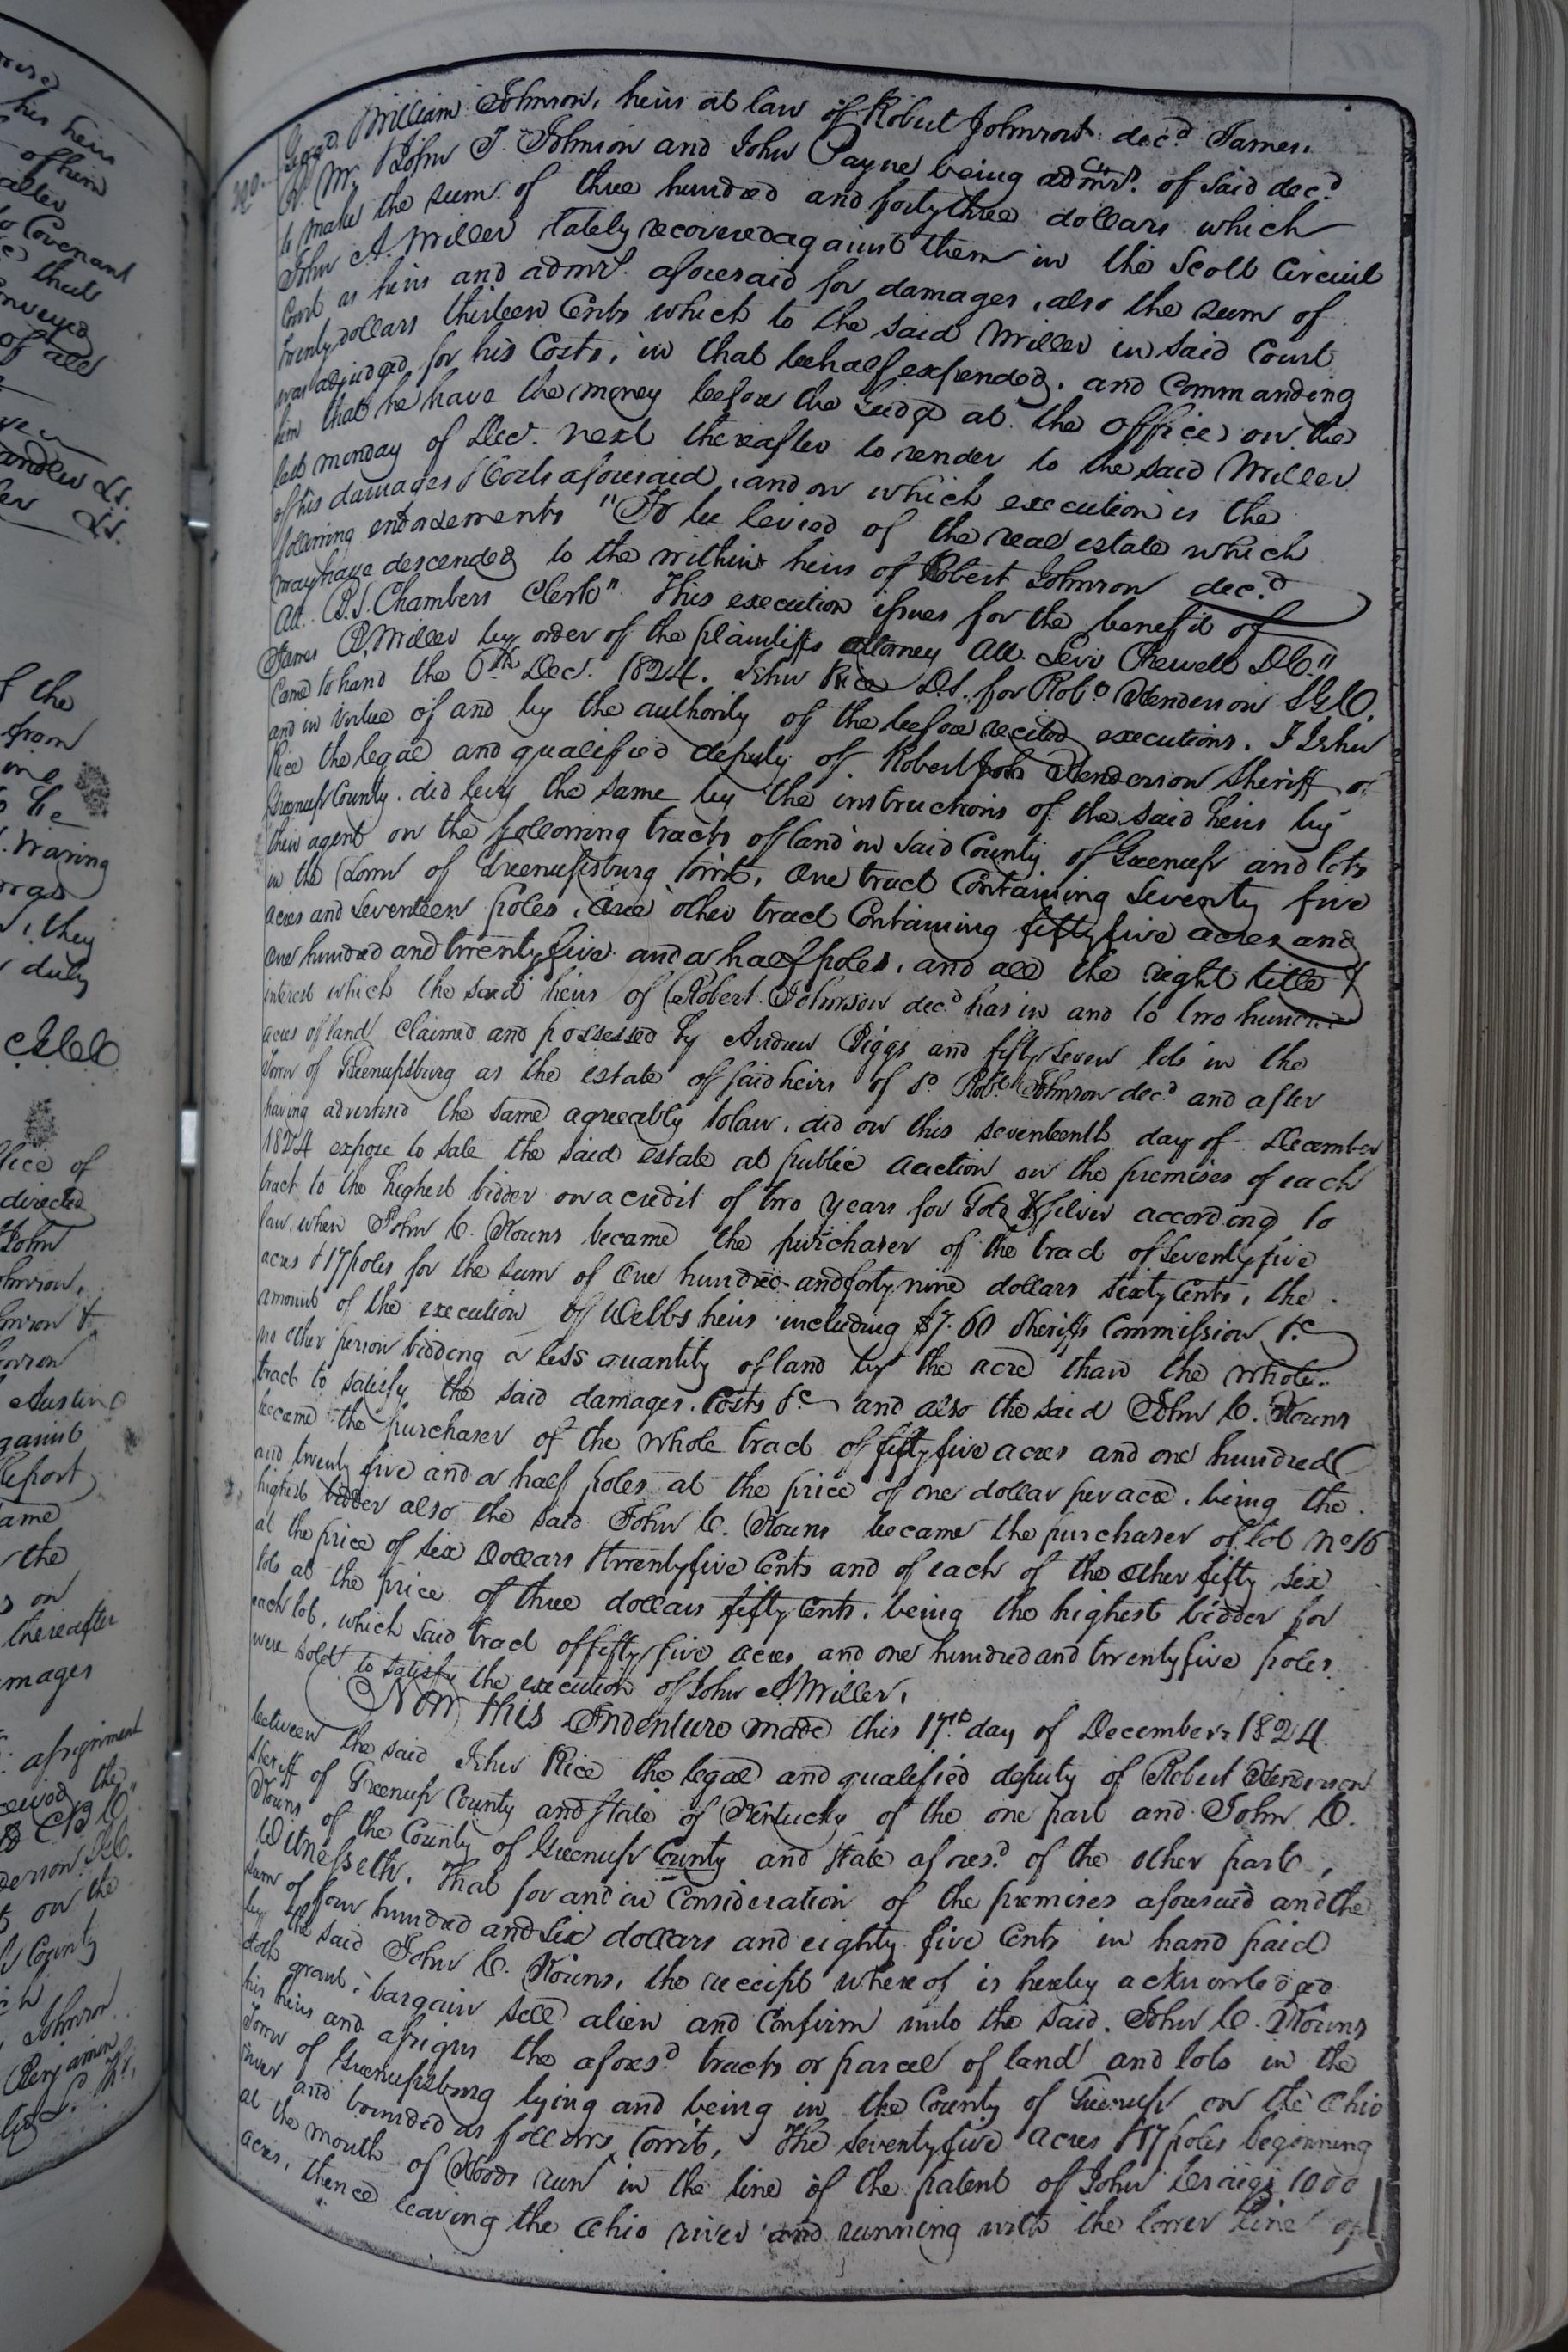 William Johnson, heirs at law of Robert Johnson decd. James.
R. M. John T. Johnson and John Payne being admrs. of said decd.
to make the sum of three hundred and forty three dollars which
John A. Miller lately recovered against them in the Scott Circuit
Court as heirs and admrs. aforesaid for damages, also the sum of
twenty dollars thirteen Cents which to the said Miller in said Court
was adjudged for his Costs, in that behalf expended, and Commanding
him that he have the money before the Judge at the office on the
last monday of Decr. next thereafter to render to the said Miller
of his damages & Costs aforesaid, and on which execution is the
following endorsements "To be levied of the real estate which
may have descended to the within heirs of Robert Johnson decd.
Att. B.S. Chambers Clerk". This execution issues for the benefit of
James Miller by order of the plaintiffs attorney Att. Levi D.C."
Came to hand the 6th Decr. 1824. John Rice D.S. for Robt. Henderson S.G.C.
and in virtue of and by the authority of the before recited executions. I John
Rice the legal and qualified deputy of Robert Henderson Sheriff of
Greenup County. did levy the same by the instructions of the said heirs by
their agent on the following tracts of land in said County of Greenup and lots
in the Town of Greenupsburg towit, One tract Containing Seventy five
acres and Seventeen poles, one other tract Containing fifty five acres and
one hundred and twenty five and a half poles, and all the right title &
interest which the said heirs of Robert Johnson decd. has in and to two hundred
acres of land claimed and possessed by Andrew Biggs and fifty seven lots in the
Town of Greenupsburg as the estate of said heirs of sd. Robt. Johnson decd. and after
having advertised the same agreeably to law. did on this seventeenth day of December
1824 expose to sale the said estate at public auction on the premises of each
tract to the highest bidder on a credit of two years for Gold & Silver according to
law. when John C. Kouns became the purchaser of the tract of seventy five
acres & 17 poles for the sum of One hundred and forty nine dollars sixty Cents, the
amount of the execution of Webbs heirs including $7.60 Sheriffs Commission &c
no other person bidding a less quantity of land by the acre than the whole
tract to satisfy the said damages. Costs &c and also the said John C. Kouns
became the purchaser of the whole tract of fifty five acres and one hundred
and twenty five and a half poles at the price of one dollar per acre. being the
highest bidder also the said John C. Kouns became the purchaser of lot No 16
at the price of six Dollars & twenty five Cents and of each of the other fifty six
lots at the price of three dollars fifty Cents. being the highest bidder for
each lot, which said tract of fifty five acres and one hundred and twenty five poles
were sold to satisfy the execution of John A Miller.
Now this Indenture made this 17th day of December 1824
between the said John Rice the legal and qualified deputy of Robert Henderson
Sheriff of Greenup County and State of Kentucky of the one part and John C.
Kouns of the County of Greenup County and State aforesd. of the other part,
Witnesseth. That for and in Consideration of the premises aforesaid and the
sum of four hundred and six dollars and eighty five Cents in hand paid
by the said John C. Kouns, the receipt whereof is hereby acknowledged
doth grant, bargain sell alien and Confirm unto the said John C. Kouns
his heirs and assigns the aforesd. tracts or parcel of land and lots in the
Town of Greenupsburg lying and being in the County of Greenup on the Ohio
river and bounded as follows towit, The seventy five acres & 17 poles beginning
at the mouth of Woods run in the line of the patent of John Craigs 1000
acres, thence leaving the Ohio river and running with the lower line of